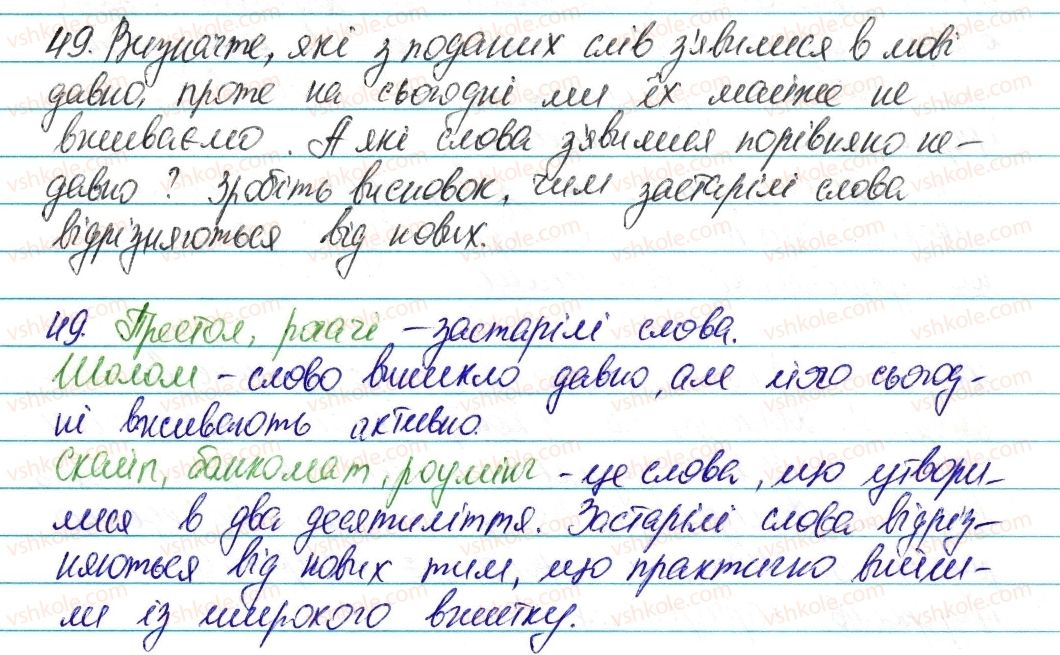 49. Визначте, які з поданих слів з'явилися в мові
давно, проте на сьогодні ми їх майже не
вживаємо. А які слова з'явилися порівняно не-
давно? Зробіть висновок, чим застарілі слова
відрізняються від нових.
49. Престол, рогачі – застарілі слова.
Шолом – слово виникло давно, але його сьогод-
ні вживають активно.
Скайп, банкомат, роумінг – це слова, що утвори-
лися в два десятиліття. Застарілі слова відріз-
няються від нових тим, що практично вийш-
ли із широкого вжитку.